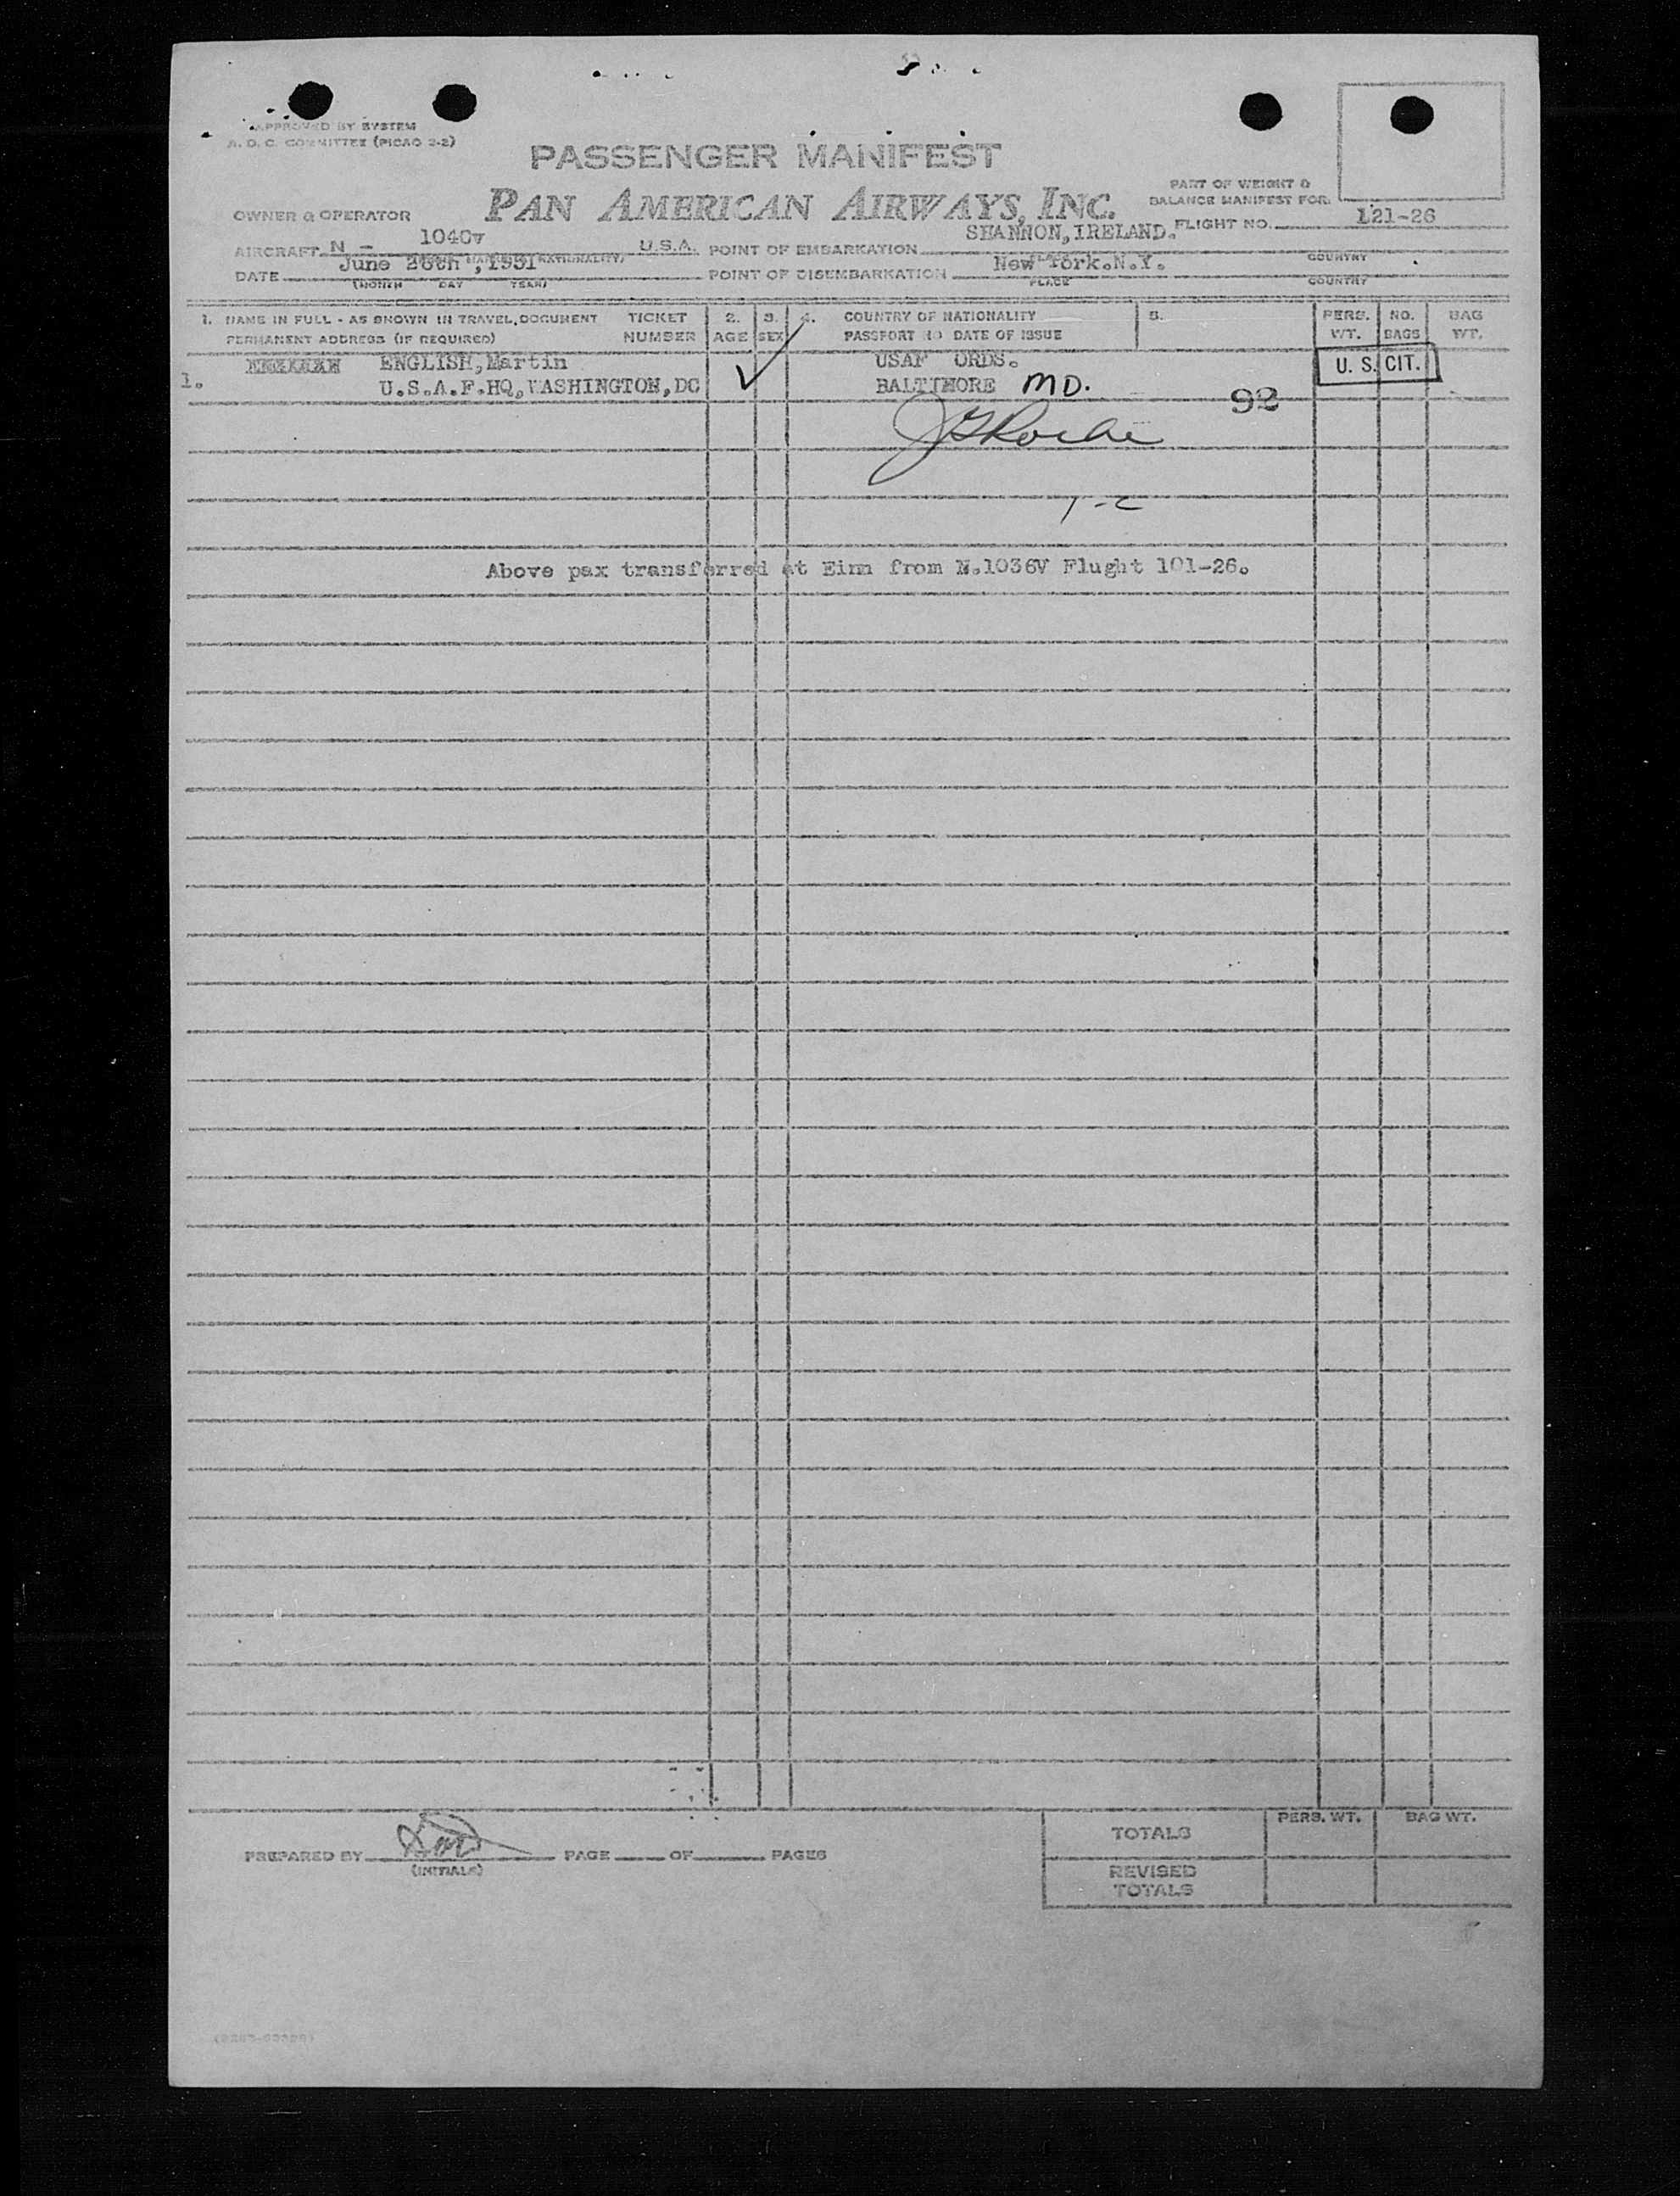 APPROVED BY SYSTEM
A. O. C. COMMITTEE (PICAO 2-2)
PASSENGER MANIFEST
PAN AMERICAN AIRWAYS, INC.
PART OF WEIGHT &
BALANCE MANIFEST FOR:
OWNER & OPERATOR
FLIGHT NO. 121-26
AIRCRAFT N - 1040v U.S.A. POINT OF EMBARKATION SHANNON, IRELAND.
COUNTRY
DATE June 26th, 1951 POINT OF DISEMBARKATION New York.N.Y.
(MONTH DAY YEAR) PLACE COUNTRY
1. NAME IN FULL - AS SHOWN IN TRAVEL DOCUMENT TICKET 2. 3. 4. COUNTRY OF NATIONALITY 5. PERS. NO. BAG
PERMANENT ADDRESS (IF REQUIRED) NUMBER AGE SEX PASSPORT NO DATE OF ISSUE WT. BAGS WT.
1. ENGLISH,Martin USAF ORDS. U. S. CIT.
U.S.A.F.HQ,WASHINGTON,DC BALTIMORE MD. 92
1-2
Above pax transferred at Einn from N.1036V Flught 101-26.
PREPARED BY PAGE OF PAGES
(INITIALS)
TOTALS PERS. WT. BAG WT.
REVISED
TOTALS